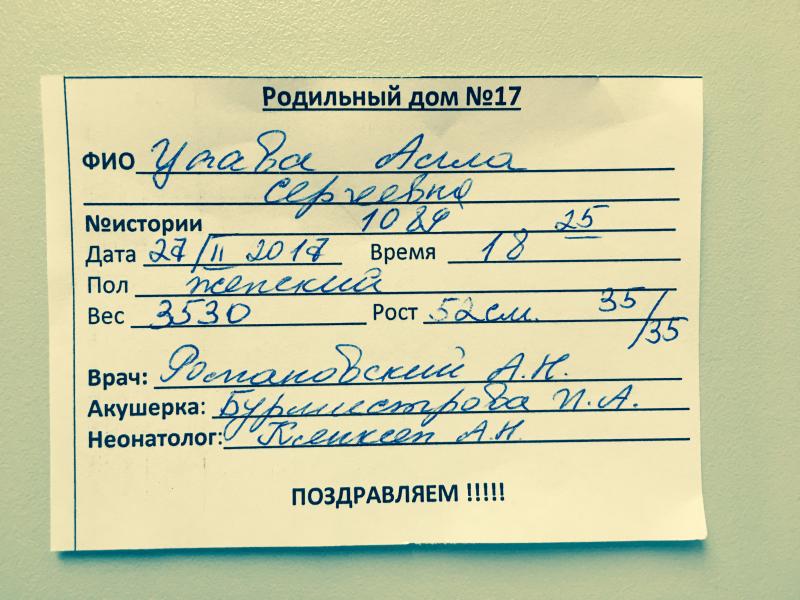 Родильный дом №17
ФИО Алла
Сергеевна
№истории 1084
Дата 27/II 2017 Время 18 25
Пол женский
Вес 3530 Рост 52 см. 35/35
Врач: Романовский А.Н.
Акушерка: Бурмистрова П.А.
Неонатолог: А.Н.
ПОЗДРАВЛЯЕМ !!!!!